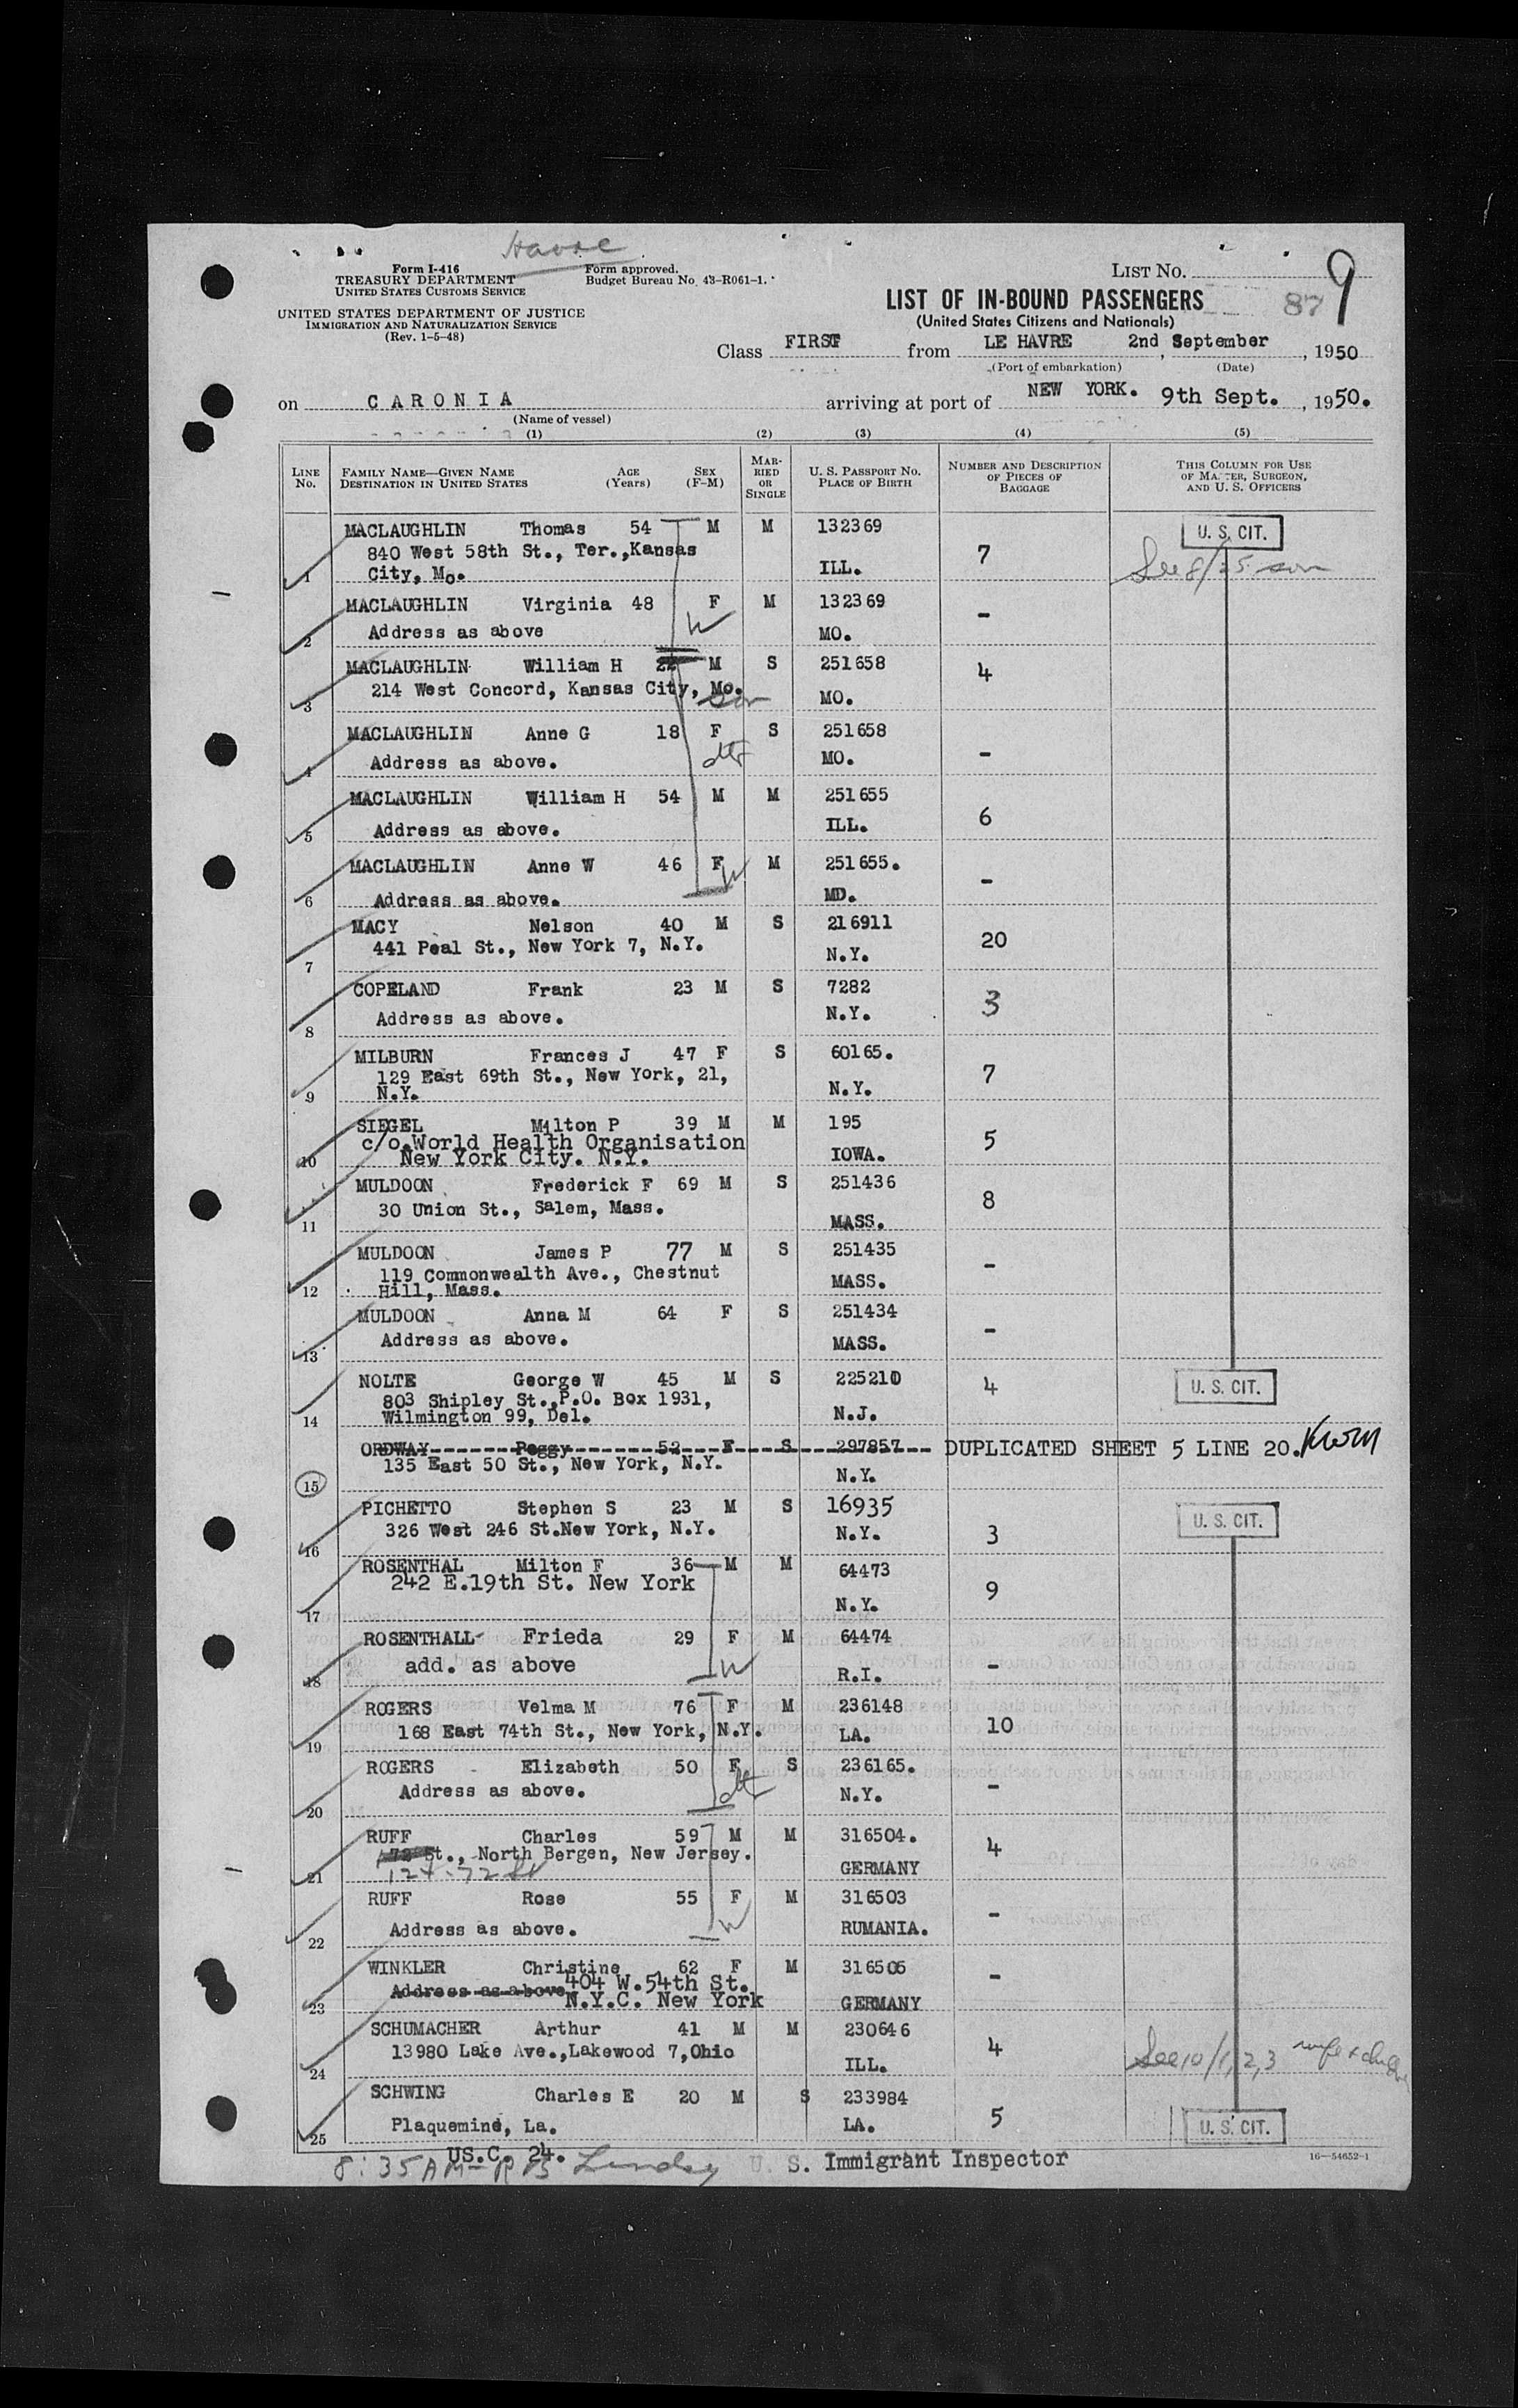 Havre
Form I-416
TREASURY DEPARTMENT
UNITED STATES CUSTOMS SERVICE
Form approved.
Budget Bureau No. 43-R061-1.
LIST NO. 9
UNITED STATES DEPARTMENT OF JUSTICE
IMMIGRATION AND NATURALIZATION SERVICE
(Rev. 1-5-48)
LIST OF IN-BOUND PASSENGERS 87
(United States Citizens and Nationals)
Class FIRST from LE HAVRE 2nd September, 1950
(Port of embarkation) (Date)
on CARONIA arriving at port of NEW YORK. 9th Sept., 1950.
(Name of vessel)
(1) (2) (3) (4) (5)
LINE No. FAMILY NAME—GIVEN NAME DESTINATION IN UNITED STATES AGE (Years) SEX (F-M) MARRIED OR SINGLE U. S. PASSPORT NO. PLACE OF BIRTH NUMBER AND DESCRIPTION OF PIECES OF BAGGAGE THIS COLUMN FOR USE OF MASTER, SURGEON, AND U. S. OFFICERS
MACLAUGHLIN Thomas 54 M M 132369 U. S. CIT.
840 West 58th St., Ter.,Kansas 7
1 City, Mo. ILL. See 8/25 son
MACLAUGHLIN Virginia 48 F M 132369
2 Address as above W MO. -
MACLAUGHLIN William H 22 M S 251658 4
3 214 West Concord, Kansas City, Mo. son MO.
MACLAUGHLIN Anne G 18 F S 251658
4 Address as above. dtr MO. -
MACLAUGHLIN William H 54 M M 251655
5 Address as above. ILL. 6
MACLAUGHLIN Anne W 46 F W M 251655.
6 Address as above. MD. -
MACY Nelson 40 M S 216911
7 441 Peal St., New York 7, N.Y. N.Y. 20
COPELAND Frank 23 M S 7282
8 Address as above. N.Y. 3
MILBURN Frances J 47 F S 60165.
129 East 69th St., New York, 21, 7
9 N.Y. N.Y.
SIEGEL Milton P 39 M M 195
c/o.World Health Organisation 5
10 New York City. N.Y. IOWA.
MULDOON Frederick F 69 M S 251436
11 30 Union St., Salem, Mass. MASS. 8
MULDOON James P 77 M S 251435
119 Commonwealth Ave., Chestnut -
12 Hill, Mass. MASS.
MULDOON Anna M 64 F S 251434
13 Address as above. MASS. -
NOLTE George W 45 M S 225210 4 U. S. CIT.
803 Shipley St.,P.O. Box 1931,
14 Wilmington 99, Del. N.J.
ORDWAY Peggy 52 F S 297857 DUPLICATED SHEET 5 LINE 20.
15 135 East 50 St., New York, N.Y. N.Y.
PICHETTO Stephen S 23 M S 16935 U. S. CIT.
16 326 West 246 St.New York, N.Y. N.Y. 3
ROSENTHAL Milton F 36 M M 64473
17 242 E.19th St. New York N.Y. 9
ROSENTHALL Frieda 29 F M 64474
18 add. as above W R.I. -
ROGERS Velma M 76 F M 236148
19 168 East 74th St., New York, N.Y. LA. 10
ROGERS Elizabeth 50 F S 236165.
20 Address as above. dtr N.Y. -
RUFF Charles 59 M M 316504. 4
72 St., North Bergen, New Jersey.
21 GERMANY
RUFF Rose 55 F M 316503
22 Address as above. W RUMANIA. -
WINKLER Christine 62 F M 316505
Address as above 404 W.54th St. -
23 N.Y.C. New York GERMANY
SCHUMACHER Arthur 41 M M 230646
24 13980 Lake Ave.,Lakewood 7,Ohio ILL. 4 See 10/1,2,3 wife &
SCHWING Charles E 20 M S 233984
25 Plaquemine, La. LA. 5 U. S. CIT.
US.C. 24.
8:35 AM- Lindsey U. S. Immigrant Inspector 16—54652-1